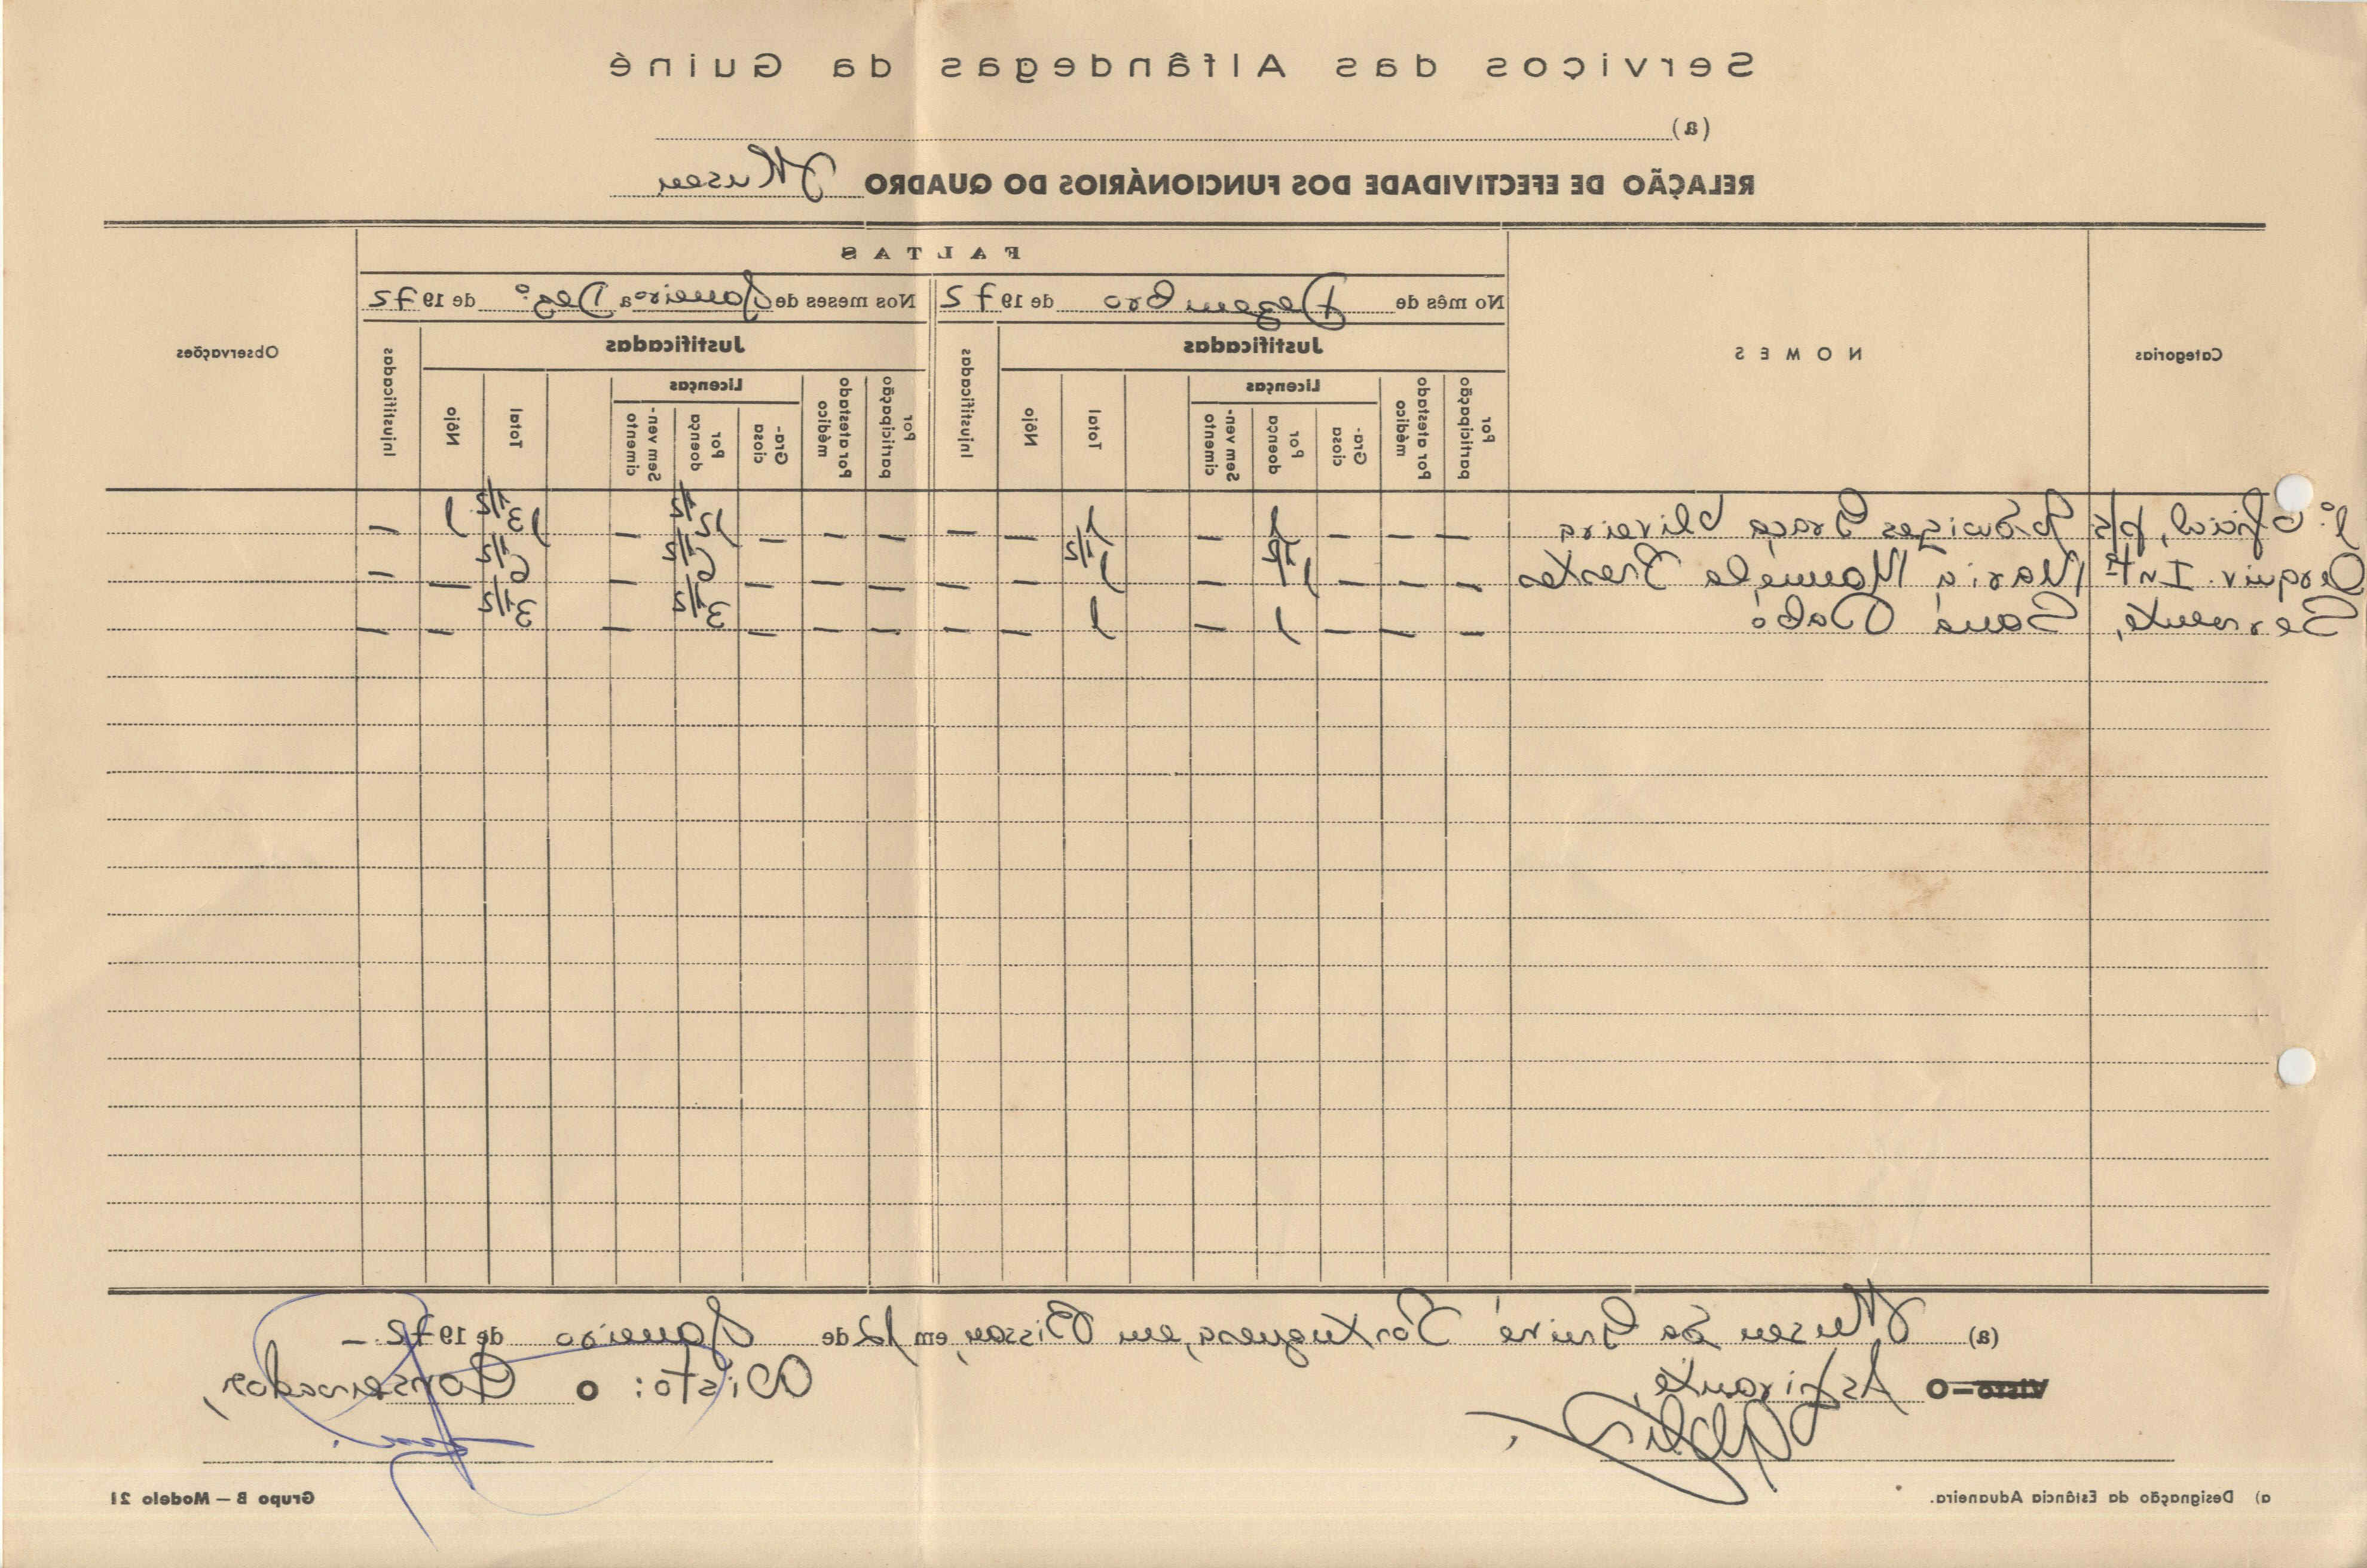 Serviços das Alfândegas da Guiné
(a)
RELAÇÃO DE EFECTIVIDADE DOS FUNCIONÁRIOS DO QUADRO Museu
Categorias
NOMES
FALTAS
Observações
No mês de Dezembro de 1972
Nos meses de Janeiro a Dezº de 1972
Justificadas
Injustificadas
Por participação
Por atestado médico
Licenças
Graciosa
Por doença
Sem vencimento
Total
Nôjo
Justificadas
Injustificadas
Por participação
Por atestado médico
Licenças
Graciosa
Por doença
Sem vencimento
Total
Nôjo
1.º Oficial, p/s Graça Oliveira — — — 1 — 1 — — — — — 12 1/2 — 13 1/2 1 —
Int.ª Maria Manuela — — — 1 1/2 — 1 1/2 — — — — — 6 1/2 — 6 1/2 — —
Servente, Saná Dabó — — — 1 — 1 — — — — — 3 1/2 — 3 1/2 — —
(a) Museu da Guiné Portuguesa, em Bissau, em 12 de Janeiro de 1972.—
Visto—O Aspirante,
Visto: o Conservador,
a) Designação da Estância Aduaneira.
Grupo B — Modelo 21